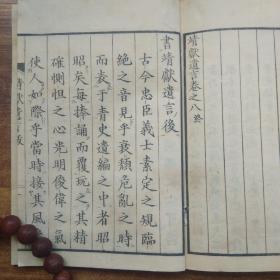 靖獻遺言卷之八終
書靖獻遺言後
古今忠臣義士素定之規臨
絶之音見乎衰頽危亂之時
而表于青史遺編之中者昭
昭矣每捧誦而覆玩之其精
確惻怛之心光明俊偉之氣
使人如際乎當時接其風